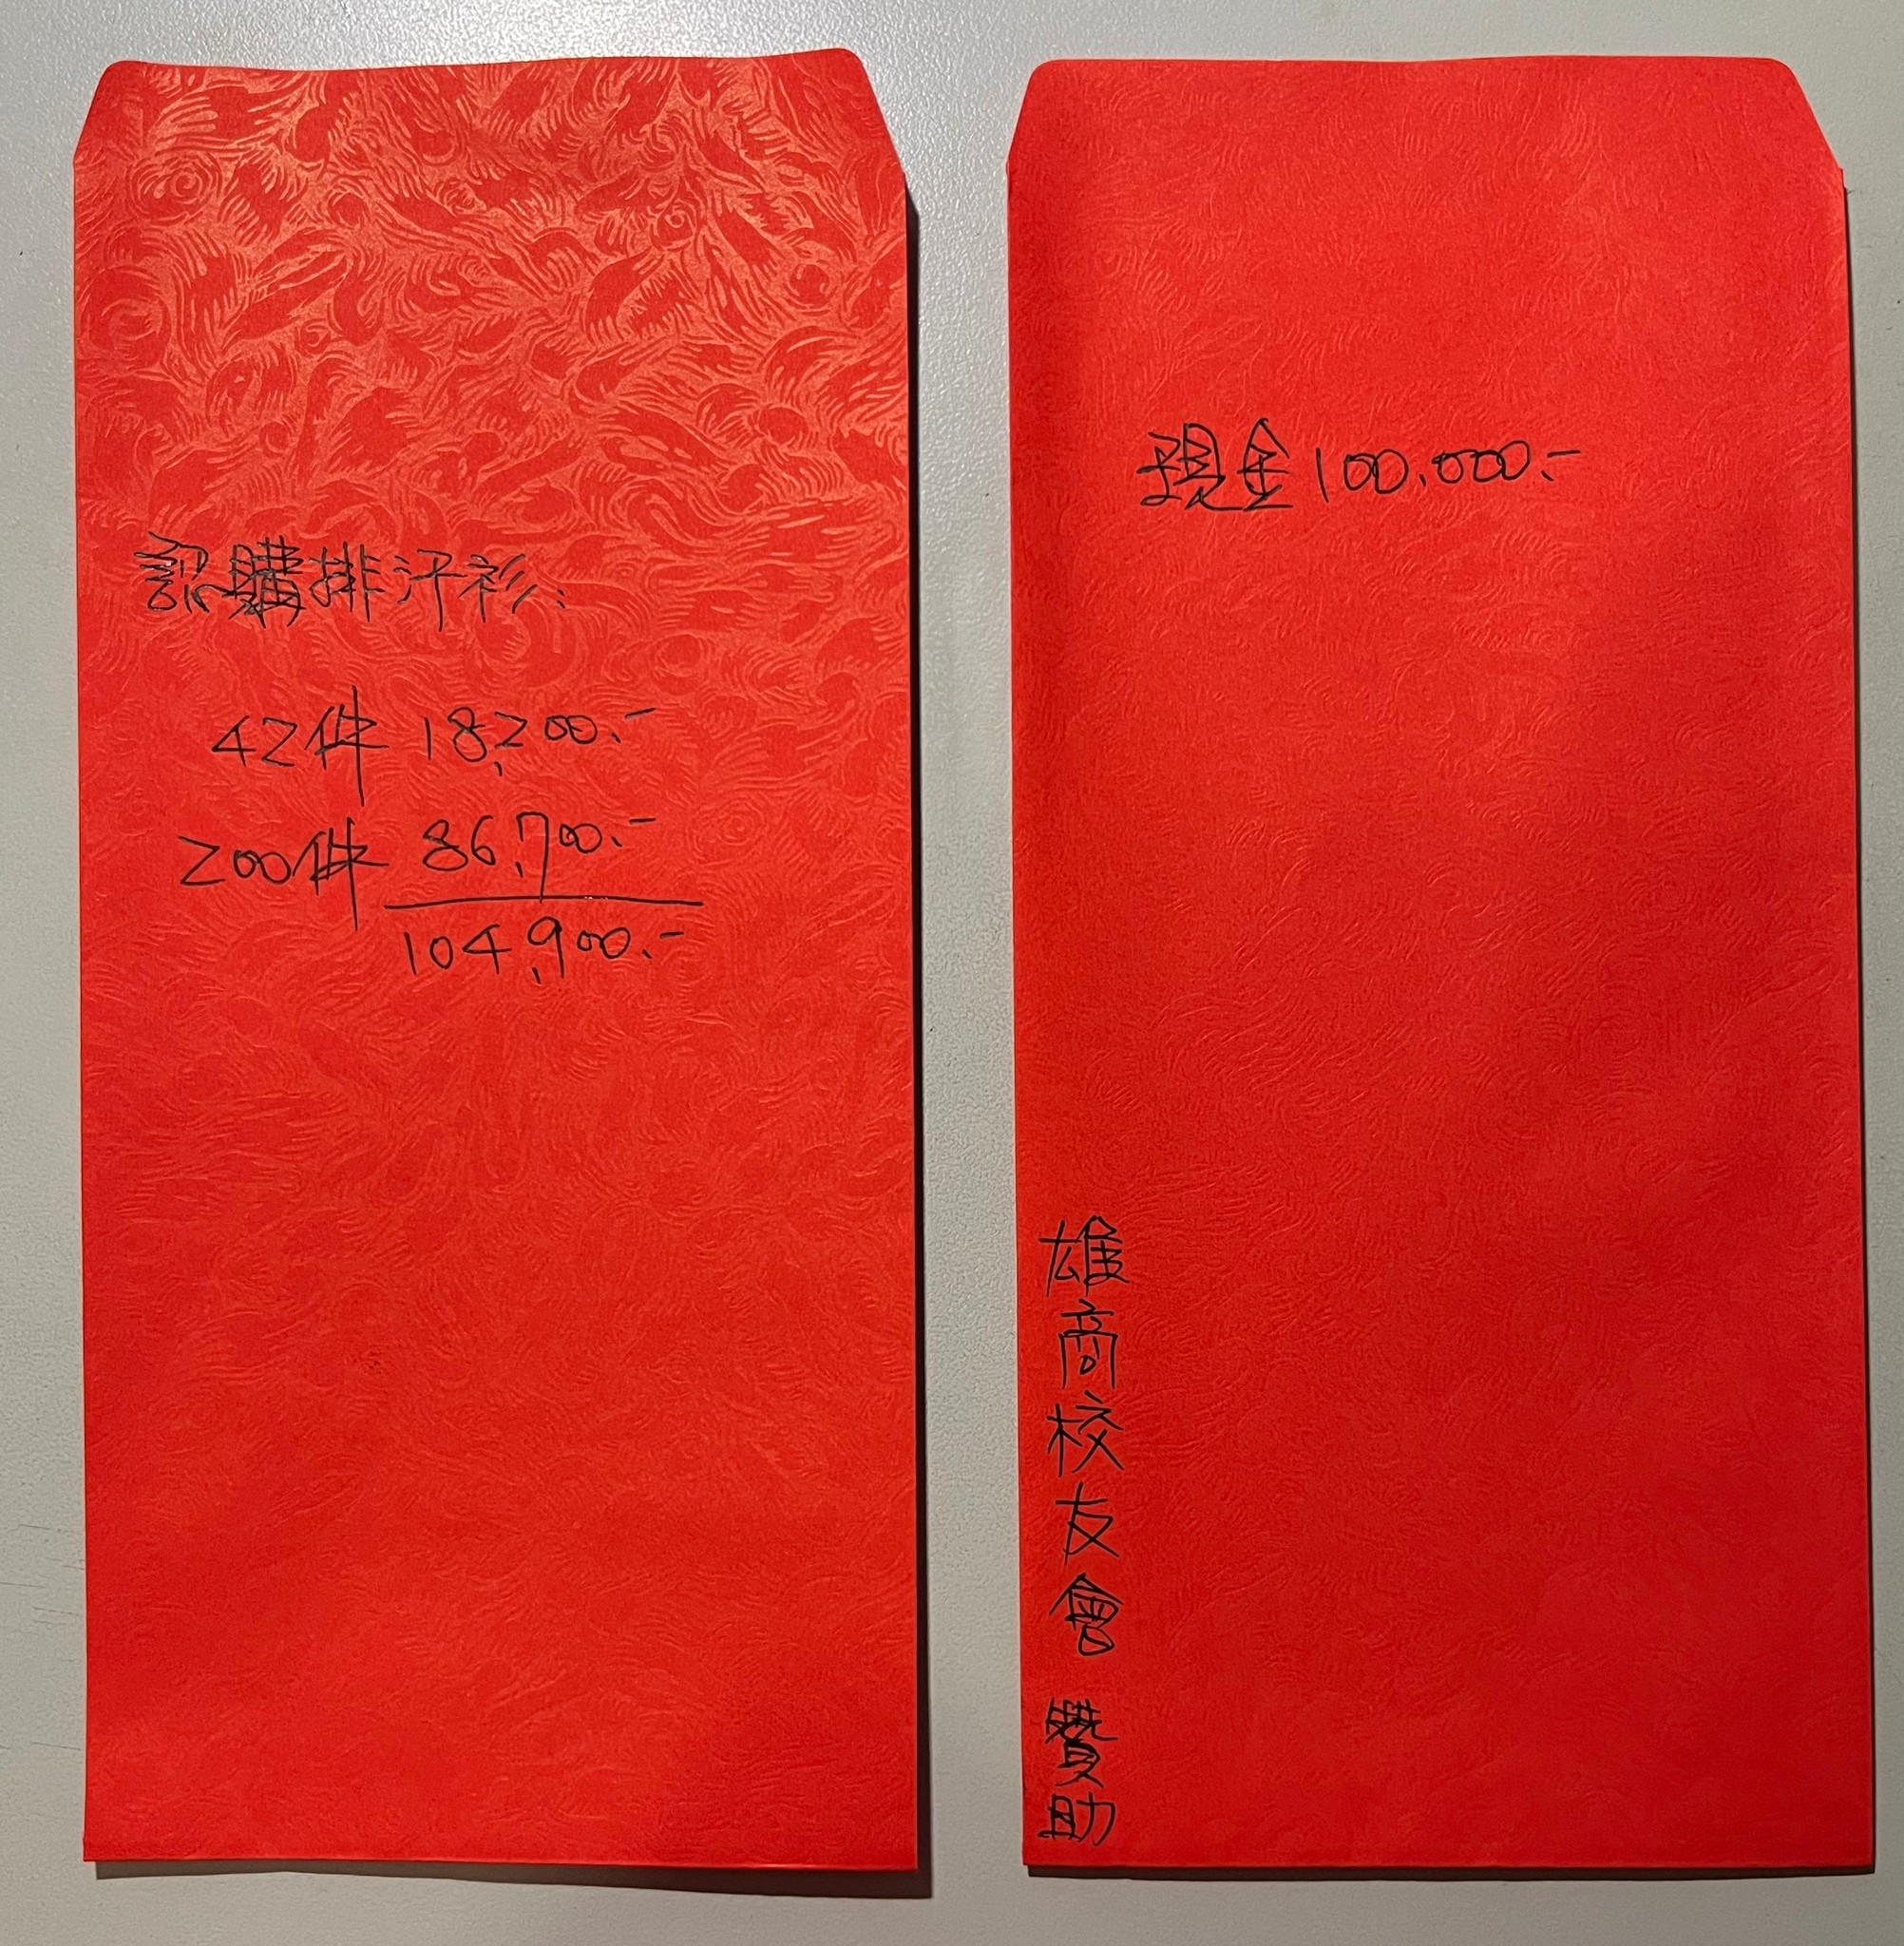 認購排汗衫:
42件 18,200.-
200件 86,700.-
104,900.-
現金100,000.-
雄商校友會 贊助